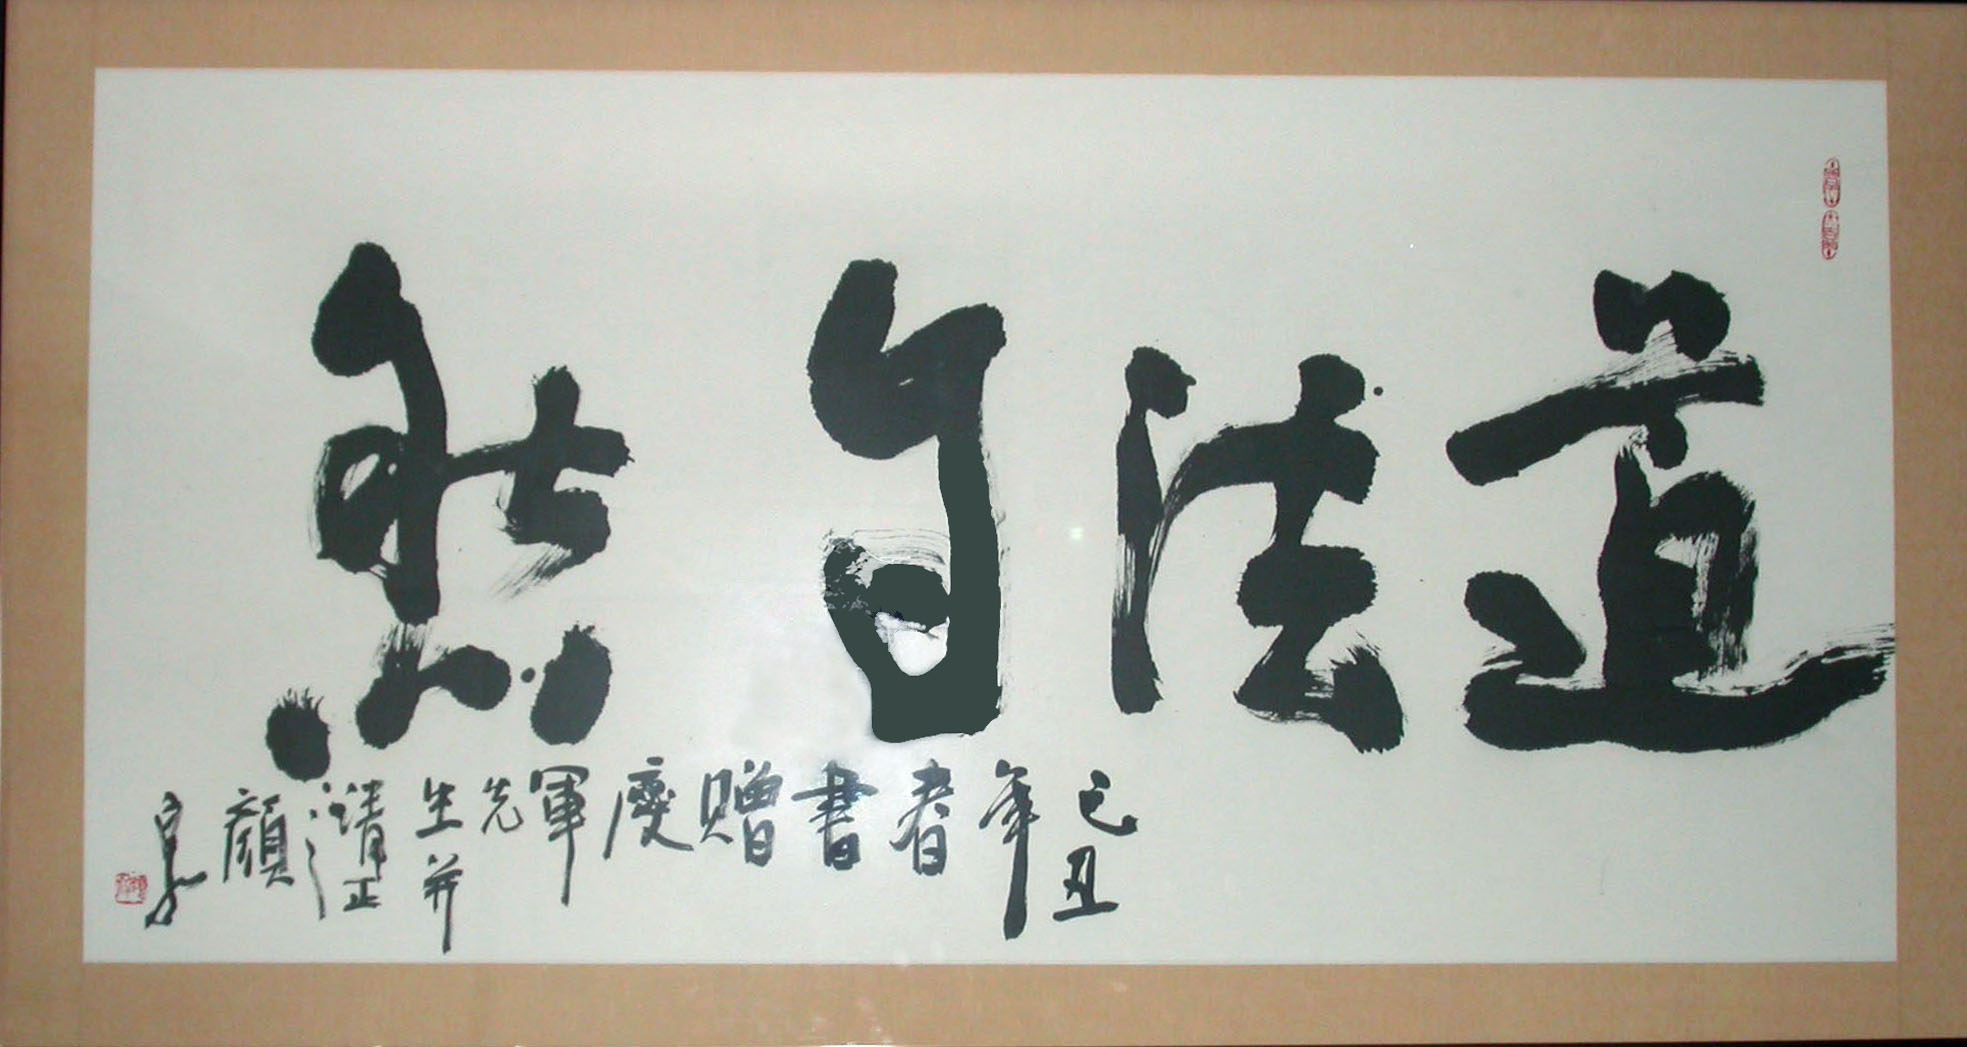 道法自然
己丑年春書贈慶軍先生并清正顏泉